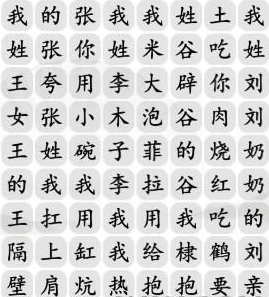 我的张我我姓土我
姓张你姓米谷吃姓
王夸用李大辟你刘
女张小木泡谷肉刘
王姓碗子菲的烧奶
的我我李拉谷红奶
王扛用我用我吃的
隔上缸我给棣鹤刘
壁肩炕热抱抱要亲